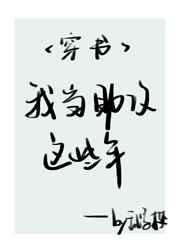 <穿书>
我当助攻
这些年
—by